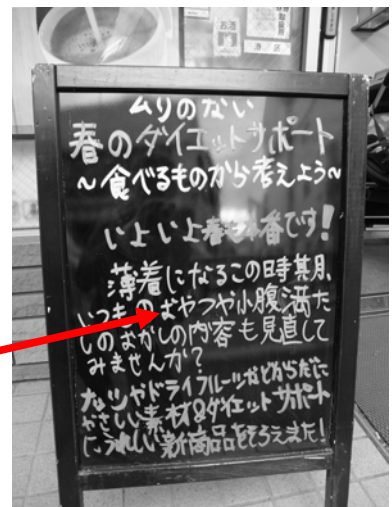 ムリのない
春のダイエットサポート
~食べるものから考えよう~
いよいよ春も本番です!
薄着になるこの時期、
いつものおやつや小腹満た
しのおかしの内容も見直して
みませんか?
ナッツやドライフルーツなどからだに
やさしい素材&ダイエットサポート
にうれしい新商品をそろえました!